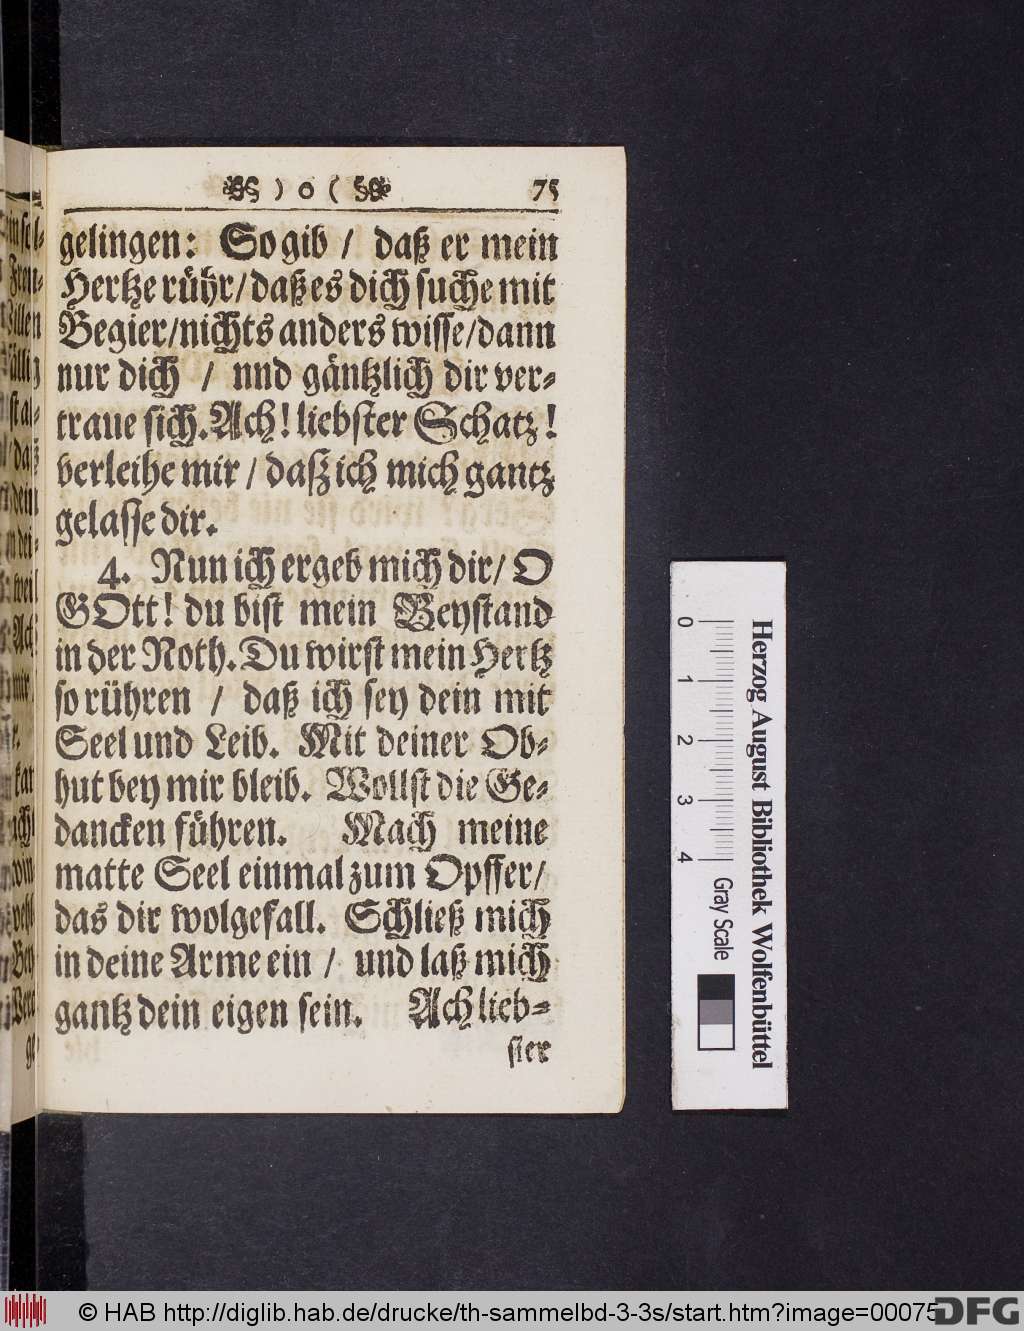 ) o ( 75
gelingen: So gib / daß er mein
Hertze rühr/ daß es dich suche mit
Begier/nichts anders wisse/dann
nur dich / nnd gäntzlich dir ver-
traue sich. Ach! liebster Schatz!
verleihe mir / daß ich mich gantz
gelasse dir.
4. Nun ich ergeb mich dir/ O
GOtt! du bist mein Beystand
in der Noth. Du wirst mein Hertz
so rühren / daß ich sey dein mit
Seel und Leib. Mit deiner Ob-
hut bey mir bleib. Wollst die Ge-
dancken führen. Mach meine
matte Seel einmal zum Opffer/
das dir wolgefall. Schließ mich
in deine Arme ein / und laß mich
gantz dein eigen sein. Ach lieb-
ster
0 1 2 3 4
Gray Scale
Herzog August Bibliothek Wolfenbüttel
© HAB http://diglib.hab.de/drucke/th-sammelbd-3-3s/start.htm?image=00075
DFG